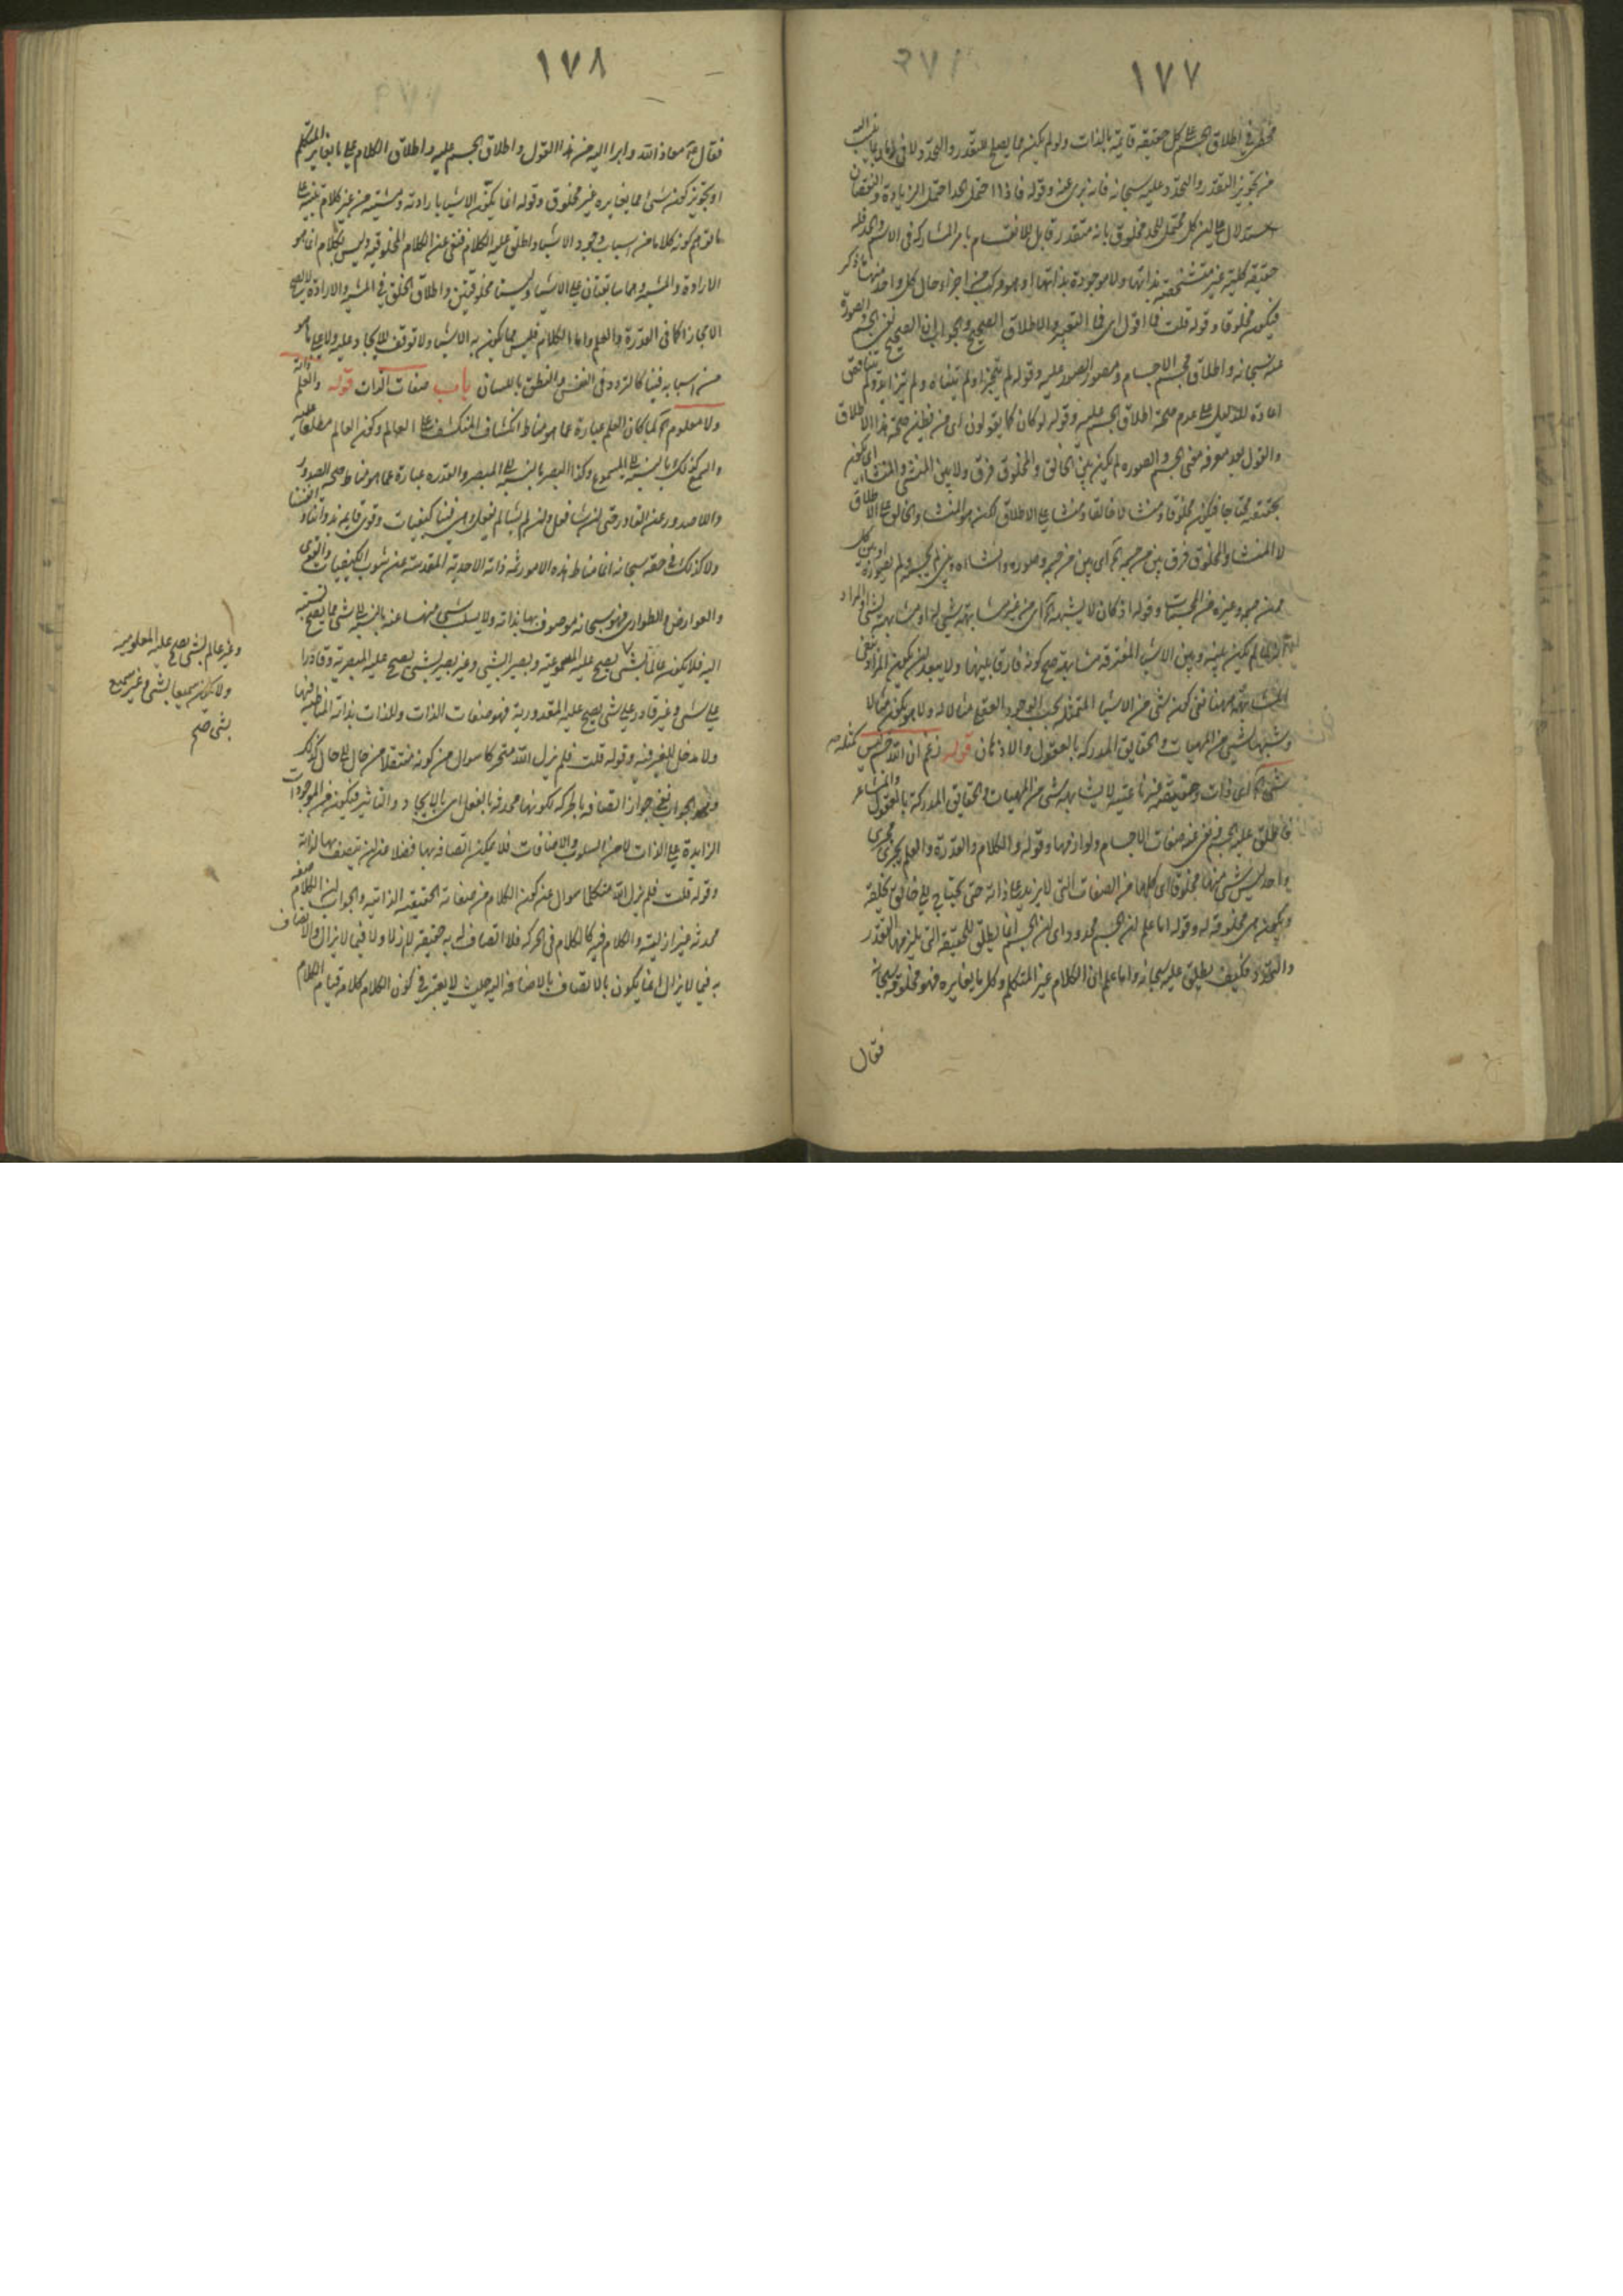 ١٧٧
في اطلاق الجسم على كل حقيقة قايمة بالذات ولو لم يكن مما يصلح للتقدر والتحدد ولا في
من تجويز التقدر والتحدد عليه سبحانه فانه بري عنه وقوله فاذا احتمل الحد احتمل الزيادة والنقصان
استدلال على ان كل محتمل للحد مخلوق بانه متقدر قابل للانقسام باجزاء المشاركة في الاسم والحد فله
حقيقة كلية غير متشخصة بذاتها ولا موجودة بذاتها او هو مركب من اجزاء حال كل واحد منها ما ذكر
فيكون مخلوقا وقوله قلت فما اقول اي فما التعبير والاطلاق الصحيح والجواب ان الصحيح نفي الجسم والصورة
عنه سبحانه واطلاق مجسم الاجسام ومصور الصور عليه وقوله لم يتجزا ولم يتناه ولم يتزايد ولم يتناقص
اعادة للدليل على عدم صحة اطلاق الجسم عليه وقوله لو كان كما يقولون اي من يظن صحة هذا الاطلاق
والقول بعد معرفة معنى الجسم والصورة لم يكن بين الخالق والمخلوق فرق ولا بين المنشئ والمنشا اي كونه
بحقيقته محتاجا فيكون مخلوقا ومنشا لا خالقا ومنشيا على الاطلاق لكنه هو المنشئ والخالق على الاطلاق
لا المنشا والمخلوق فرق بين من جسمه اه اي بين من جسمه وصوره وانشاه وبين من لم يجسمه ولم يصوره او بين كل
ممن جسمه وغيره من المجسمات وقوله اذ كان لا يشبهه اه اي من غير مشابهة شيئ له او مشابهته لشي والمراد
لم يكن بينه وبين الاشياء المفترقة مشابهة صح كونه فارقا بينها ولا يبعد ان يكون المراد بنفي
المشابهة ههنا نفي كون شي من الاشياء المتمثلة بحسب الوجود العيني مثالا له ولا هو يكون مثالا
وشبها لشي من المهيات والحقايق المدركة بالعقول والاذهان قوله زعم ان الله جسم ليس كمثله
شي اه اي ذات وحقيقة عينية لا يشابهه شي من المهيات والحقايق المدركة بالعقول والمشاعر
فاطلق عليه الجسم ونفى عنه صفات الاجسام ولوازمها وقوله والكلام والقدرة والعلم يجري مجرى
واحد ليس شي منها مخلوقا اي كلها من الصفات التي لا يزيد على ذاته حتى يحتاج الى خالق يخلقه
ويكون هي مخلوقة له وقوله اما علم ان الجسم محدود اي ان الجسم انما يطلق للحقيقة التي يلزمها التقدر
والتحدد فكيف يطلق عليه سبحانه واما علم ان الكلام غير المتكلم وكل ما يغايره فهو مخلوقه سبحانه
فقال
١٧٨
فقال معاذ الله وابرا اليه من هذا القول واطلاق الجسم عليه واطلاق الكلام على ما يغاير المتكلم
او بتجويز كون شي مما يغايره غير مخلوق وقوله انما يكون الاشياء بارادته ومشيته من غير كلام تنبيه على
ما توهم كونه كلاما من اسباب وجود الاشياء واطلق عليه الكلام فنفى عن الكلام المخلوقية وليس بكلام انما هو
الارادة والمشية وهما سابقتان على الاشياء وليستا مخلوقتين واطلاق الخلق في المشية والارادة لا يصح
الا مجازا كما في القدرة والعلم واما الكلام فليس مما يكون به الاشياء ولا توقف للايجاد عليه ولا على ما هو
من اسبابه فينا كالتردد في النفس والنطق باللسان باب صفات الذات قوله والعلم ذاته
ولا معلوم اه لما كان العلم عبارة عما هو مناط انكشاف المنكشف على العالم وكون العالم مطلعا عليه
والسمع كذلك بالنسبة الى المسموع وكذا البصر بالنسبة الى المبصر والقدرة عبارة عما هو مناط صحة الصدور
واللاصدور عن القادر حتى ان شا فعل وان لم يشا لم يفعل وهي فينا كيفيات وقوى قايمة بذواتنا وانفسنا
ولا كذلك في حقه سبحانه انما مناط هذه الامور ثمه ذاته الاحدية المقدسة عن شوب الكيفيات والقوى
والعوارض والطواري فهو سبحانه موصوف بها بذاته ولا يسلب شي منها عنه بالنسبة الى شي مما يصح نسبته
اليه فلا يكون عالما بشي يصح عليه المسموعية وبصيرا بشي وغير بصير بشي يصح عليه المبصرية وقادرا
على شي وغير قادر على شي يصح عليه المقدورية فهو صفات الذات والذات بذاته المناط فيها
ولا مدخل للغير فيه وقوله قلت فلم يزل الله متحركا سوال من كونه منتقلا من حال الى حال كذلك
ونحو الجواب نفي جواز اتصافه بالحركة لكونها محدثة بالفعل اي بالايجاد والتاثير فيكون من الموجودات
الزايدة على الذات لا من السلوب والاضافات فلا يمكن اتصافه بها فضلا من ان يتصف بها لذاته
وقوله قلت فلم يزل الله متكلما سوال عن كون الكلام من صفاته الحقيقية الذاتية والجواب ان الكلام صفة
محدثة غير ازلية والكلام فيه كالكلام في الحركة فلا اتصاف له به حقيقة لا ازلا ولا فيما لا يزال والاتصاف
به فيما لا يزال انما يكون بالاتصاف بالاضافة اليه حيث لا يعتبر في كون الكلام كلامه قيام الكلام
وغير عالم بشي يصح عليه المعلومية
ولا يكون سميعا بشي وغير سميع
بشي صح